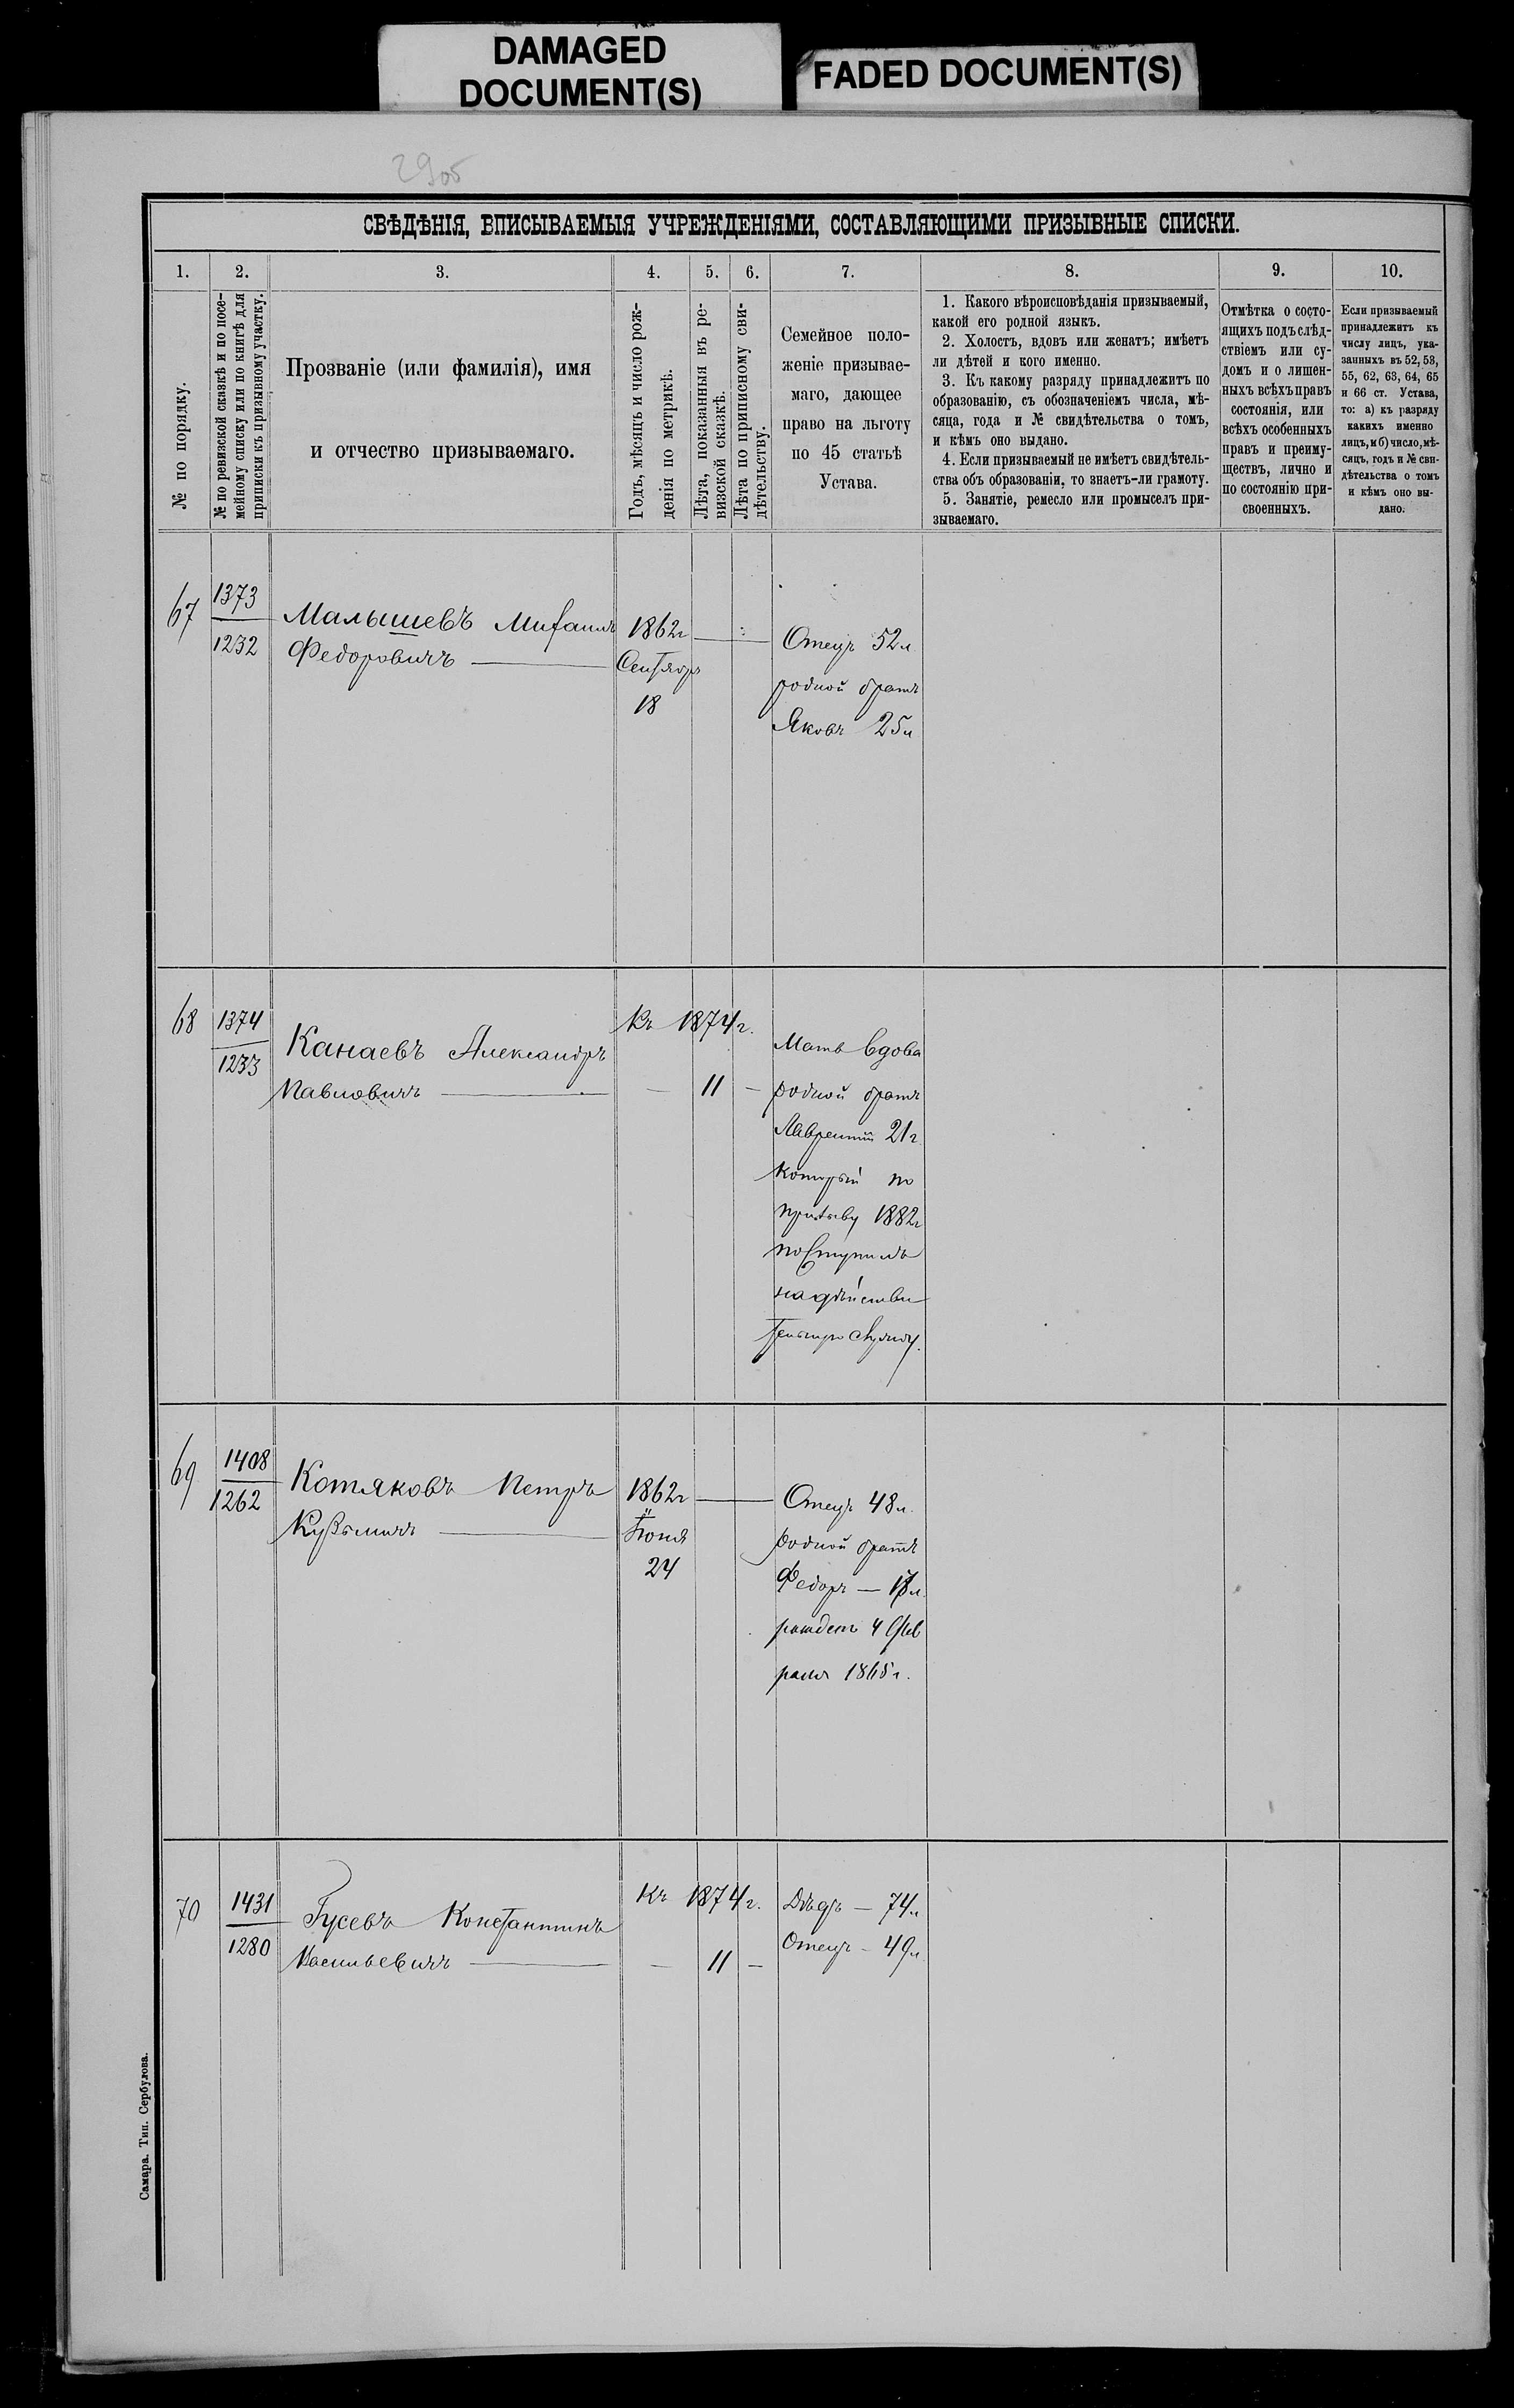 DAMAGED
DOCUMENT(S)
FADED DOCUMENT(S)
29об
СВѢДѢНІЯ, ВПИСЫВАЕМЫЯ УЧРЕЖДЕНІЯМИ, СОСТАВЛЯЮЩИМИ ПРИЗЫВНЫЕ СПИСКИ.
1.
№ по порядку.
2.
№ по ревизской сказкѣ и по посе-
мейному списку или по книгѣ для
приписки къ призывному участку.
3.
Прозваніе (или фамилія), имя
и отчество призываемаго.
4.
Годъ, мѣсяцъ и число рож-
денія по метрикѣ.
5.
Лѣта, показанныя въ ре-
визской сказкѣ.
6.
Лѣта по приписному сви-
дѣтельству.
7.
Семейное поло-
женіе призывае-
маго, дающее
право на льготу
по 45 статьѣ
Устава.
8.
1. Какого вѣроисповѣданія призываемый,
какой его родной языкъ.
2. Холостъ, вдовъ или женатъ; имѣетъ
ли дѣтей и кого именно.
3. Къ какому разряду принадлежитъ по
образованію, съ обозначеніемъ числа, мѣ-
сяца, года и № свидѣтельства о томъ,
и кѣмъ оно выдано.
4. Если призываемый не имѣетъ свидѣтель-
ства объ образованіи, то знаетъ-ли грамоту.
5. Занятіе, ремесло или промыселъ при-
зываемаго.
9.
Отмѣтка о состо-
ящихъ подъ слѣд-
ствіемъ или су-
домъ и о лишен-
ныхъ всѣхъ правъ
состоянія, или
всѣхъ особенныхъ
правъ и преиму-
ществъ, лично и
по состоянію при-
своенныхъ.
10.
Если призываемый
принадлежитъ къ
числу лицъ, ука-
занныхъ въ 52, 53,
55, 62, 63, 64, 65
и 66 ст. Устава,
то: а) къ разряду
какихъ именно
лицъ, и б) число, мѣ-
сяцъ, годъ и № сви-
дѣтельства о томъ
и кѣмъ оно вы-
дано.
67
1373
1232
Малышевъ Михаилъ
Федоровичъ —
1862г
Сентябр
18
Отецъ 52л
родной братъ
Яковъ 25л
68
1374
1233
Канаевъ Александръ
Павловичъ —
Къ 1874г.
— 11 —
Мать вдова
родной братъ
Лаврентій 21г
который по
призыву 1882г
поступилъ
на дѣйстви
тельную службу.
69
1408
1262
Котяковъ Петръ
Кузьмичъ —
1862г
Іюня
24
Отецъ 48л.
родной братъ
Федоръ — л.
рожденъ 4 Фев
раля 1865г.
70
1431
1280
Гусевъ Константинъ
Васильевичъ —
Къ 1874г.
— 11 —
Дѣдъ — 74л
Отецъ — 49л
Самара. Тип. Сербулова.